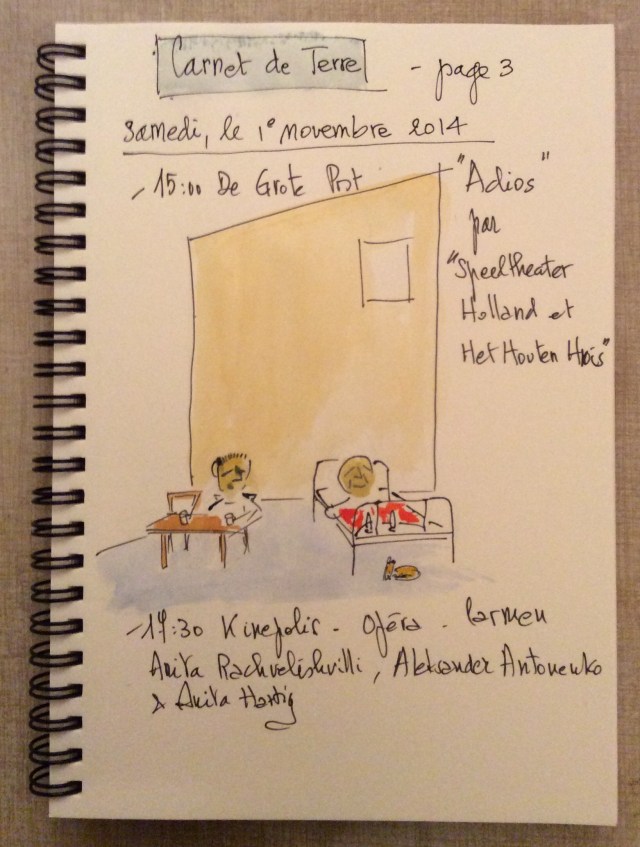 Carnet de Terre - page 3
Samedi, le 1° novembre 2014
- 15:00 De Grote Post
"Adios"
par
"Speeltheater
Holland et
Het Houten Huis"
- 17:30 Kinepolis - Opéra - Carmen
Anita Rachvelishvilli, Aleksander Antonenko
& Anita Hartig